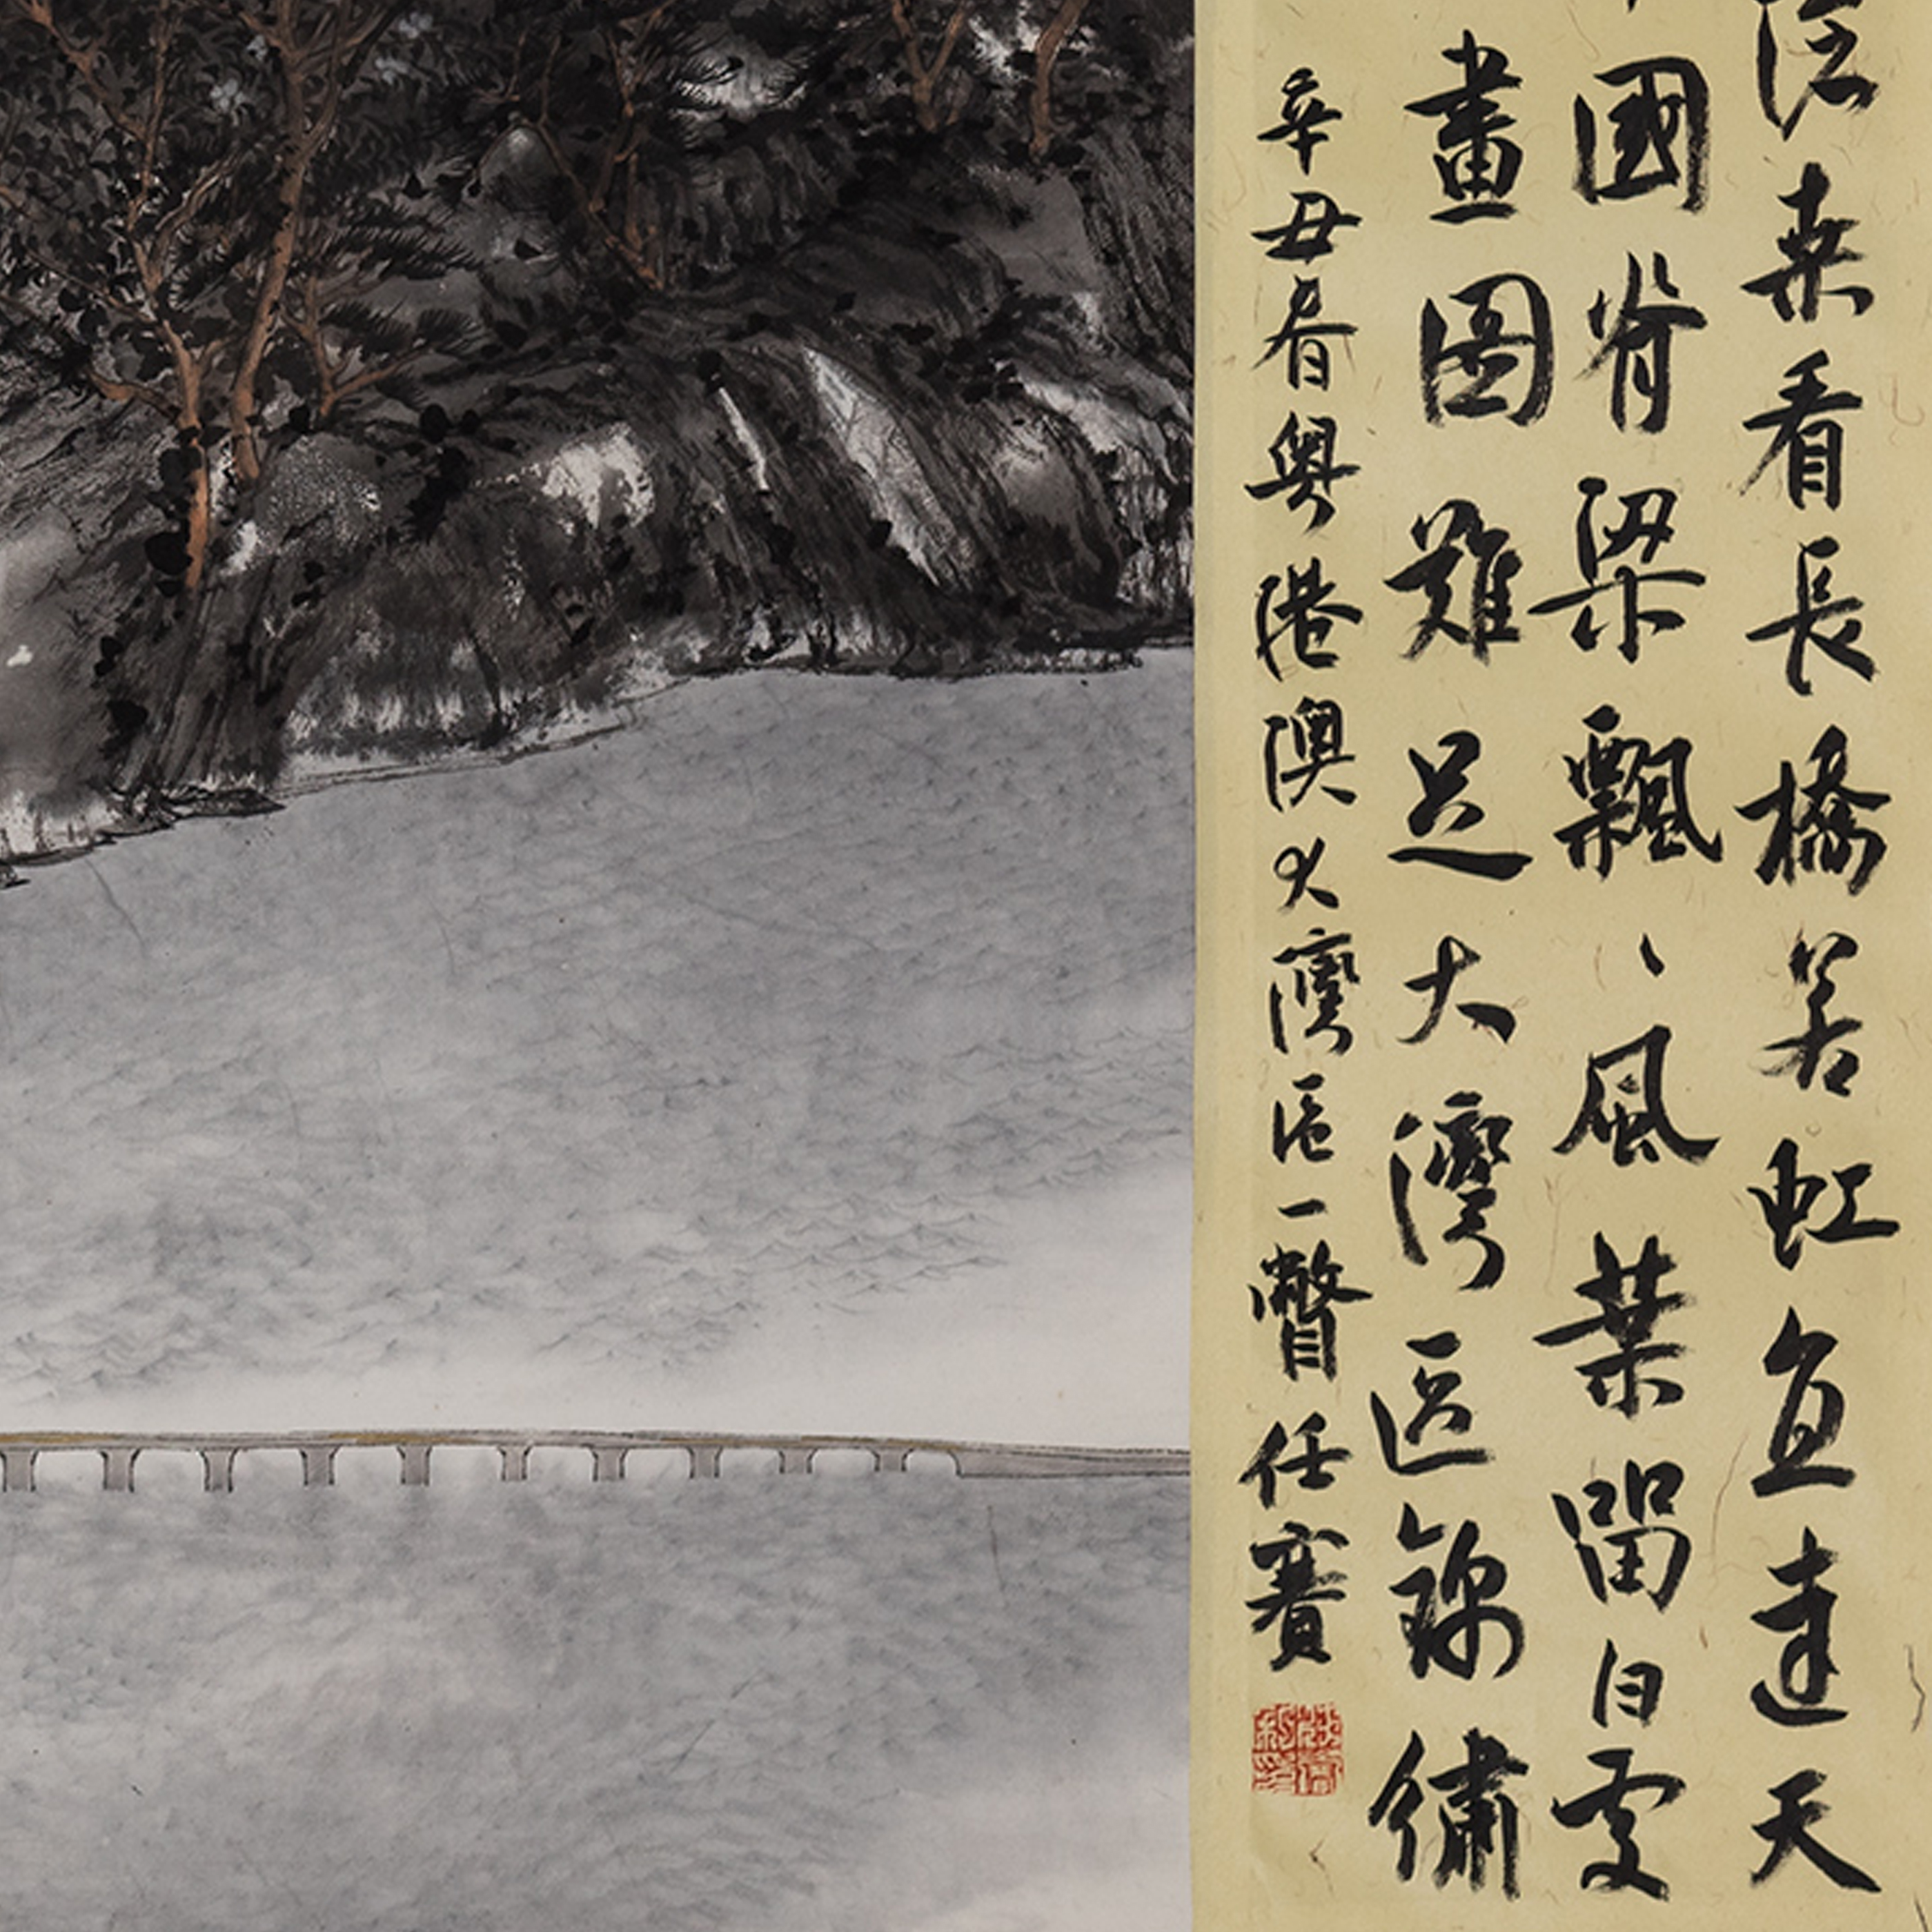 来看長橋若虹直達天
國脊梁飄、風葉留白處
畫圖難足大灣區錦繡
辛丑春粵港澳大灣區一瞥任賽